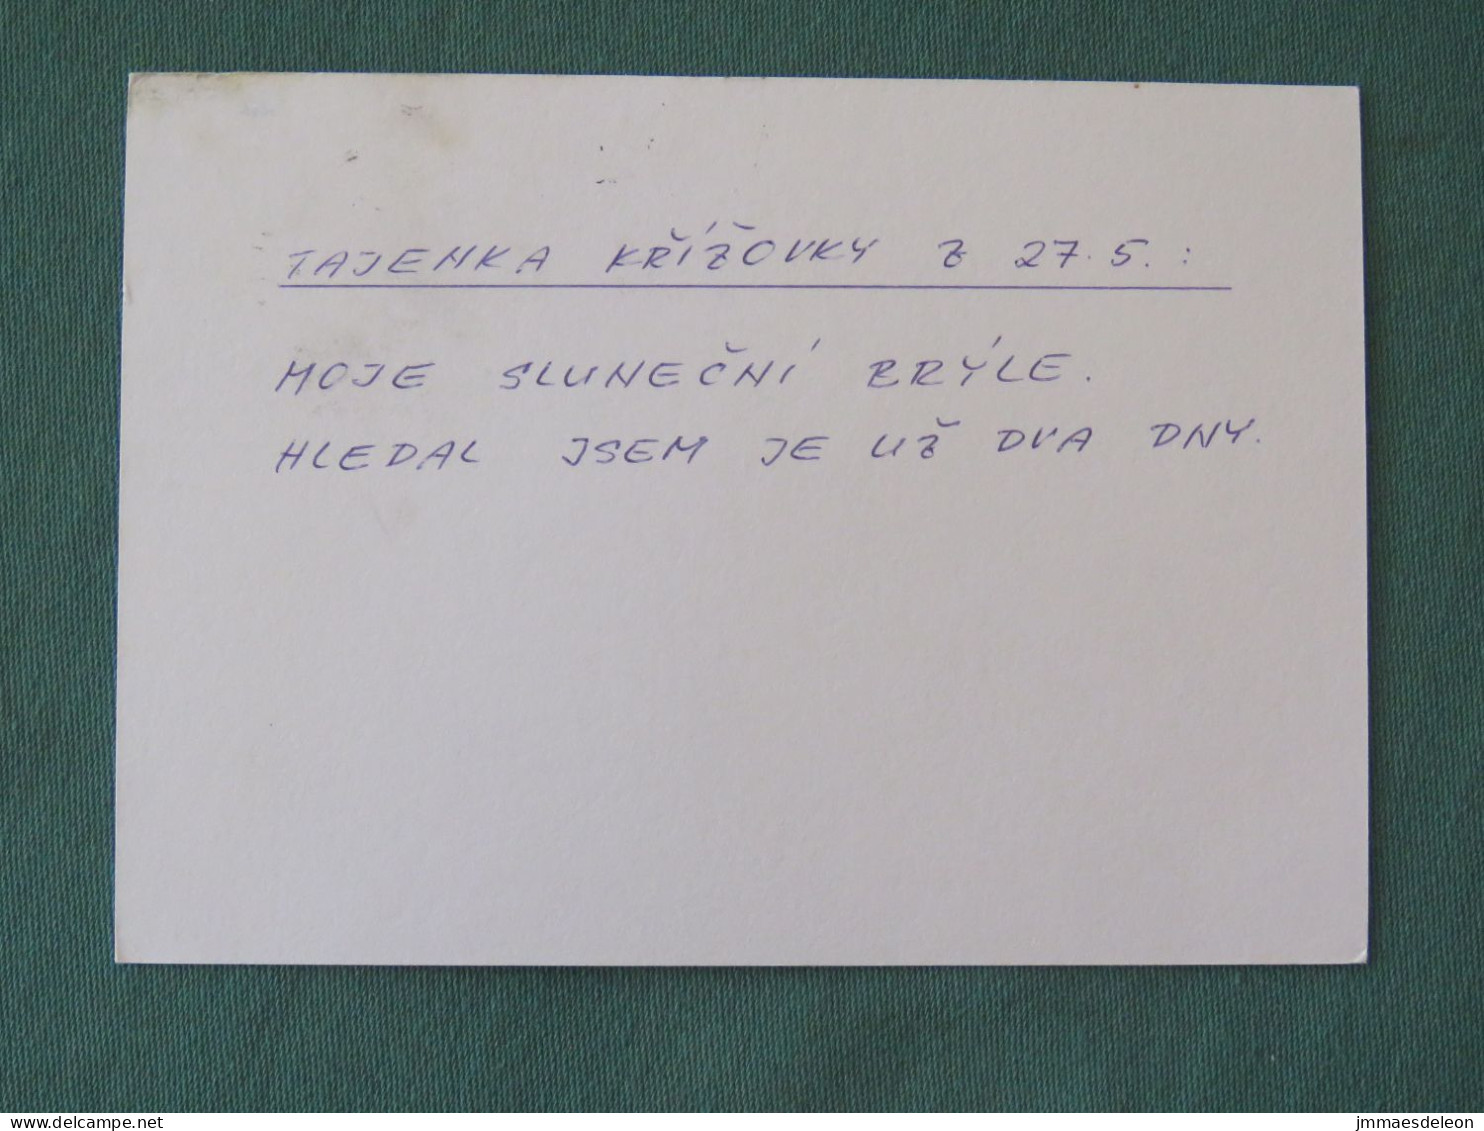 TAJENKA KŘÍŽOVKY Z 27.5.:
MOJE SLUNEČNÍ BRÝLE.
HLEDAL JSEM JE UŽ DVA DNY.
www.delcampe.net
jmmaesdeleon